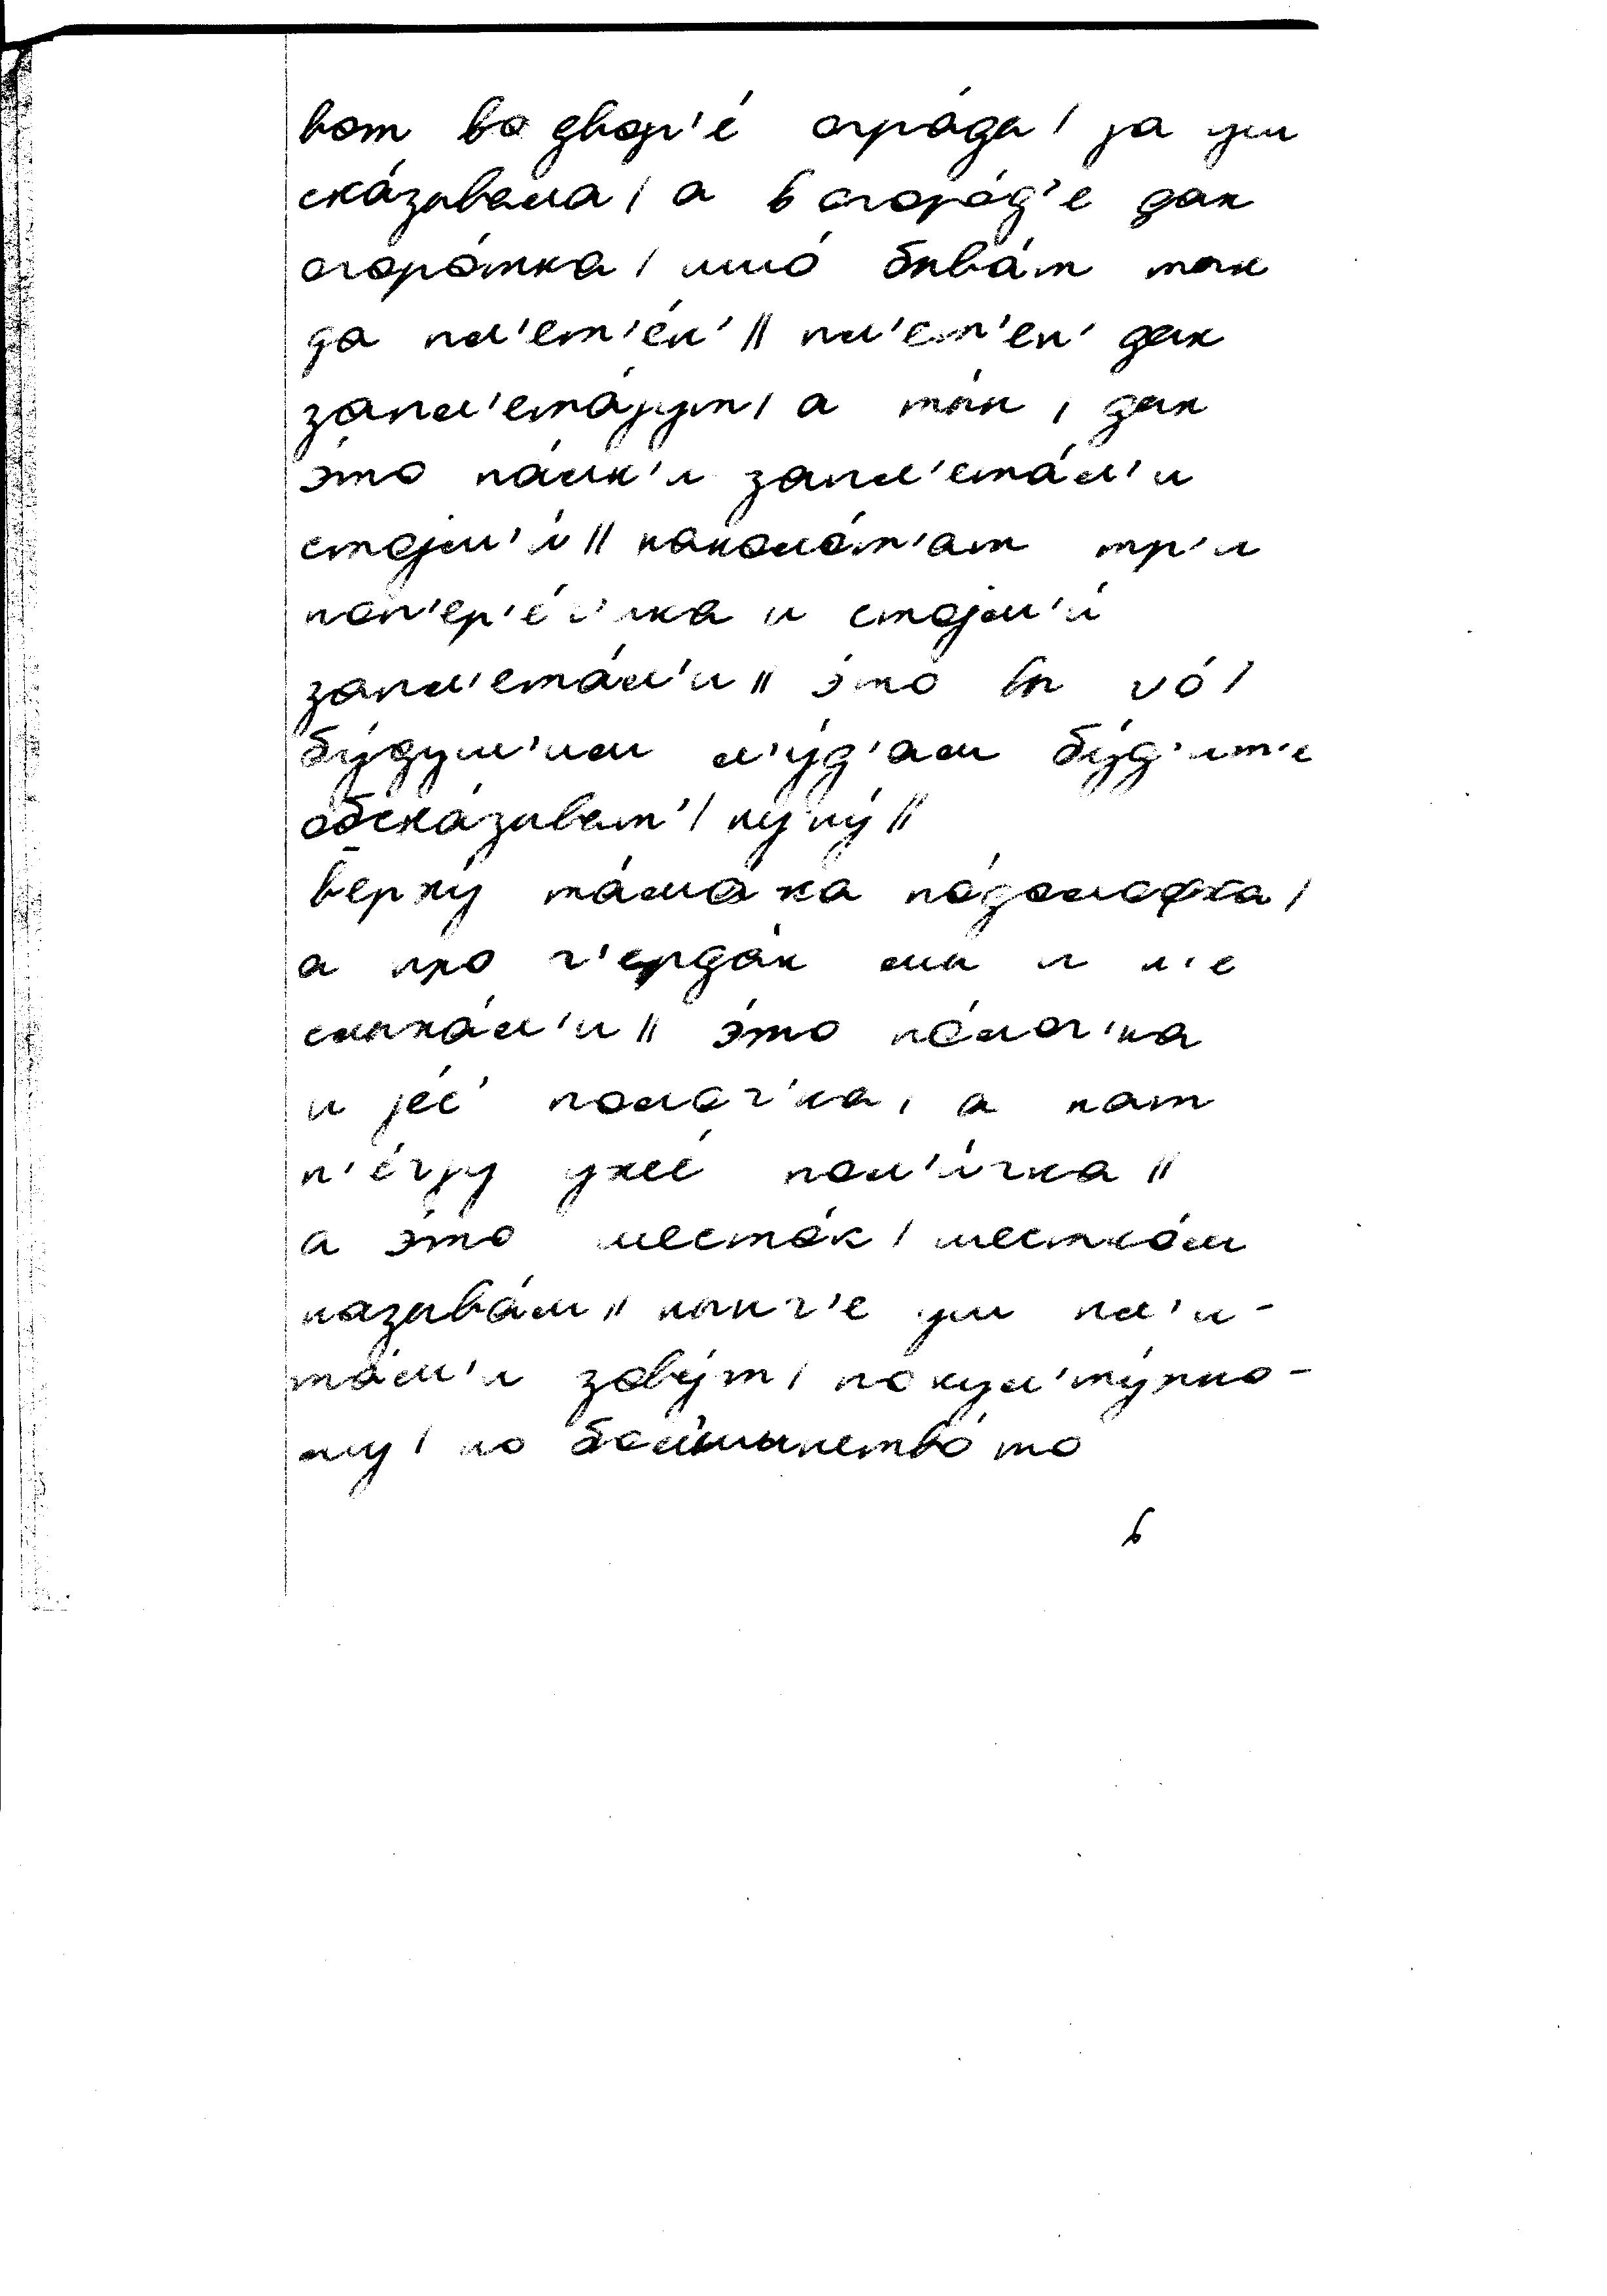 вот во двор'е́ огра́да / jа уш
ска́зывала / а в огоро́д'е дак
огоро́тка / ишо́ быва́т тын
да пл'ет'е́н' // пл'ет'ен' дак
запл'ета́jут / а тын / дак
э́то па́лк'и запл'ета́л'и
стоjм'и́ // наколо́т'ат тр'и
поп'ер'е́ч'ика и стоjм'и́
запл'ета́л'и // э́то вы чо́ /
бу́душ'им л'у́д'ам бу́д'ит'е
обска́зыват' / ну ну́ //
верху́ та́мока по́доловка /
а про ч'ерда́к мы и н'е
слыха́л'и // э́то по́лоч'ка
и jéс' полоч'ка / а нат
п'е́чjу ужé пол'и́чка //
а э́то шесто́к / шестко́м
называ́м // нын'ч'е уш пл'и-
то́л'и зову́т / по кул'ту́рно-
му / по бол'шынству́ то